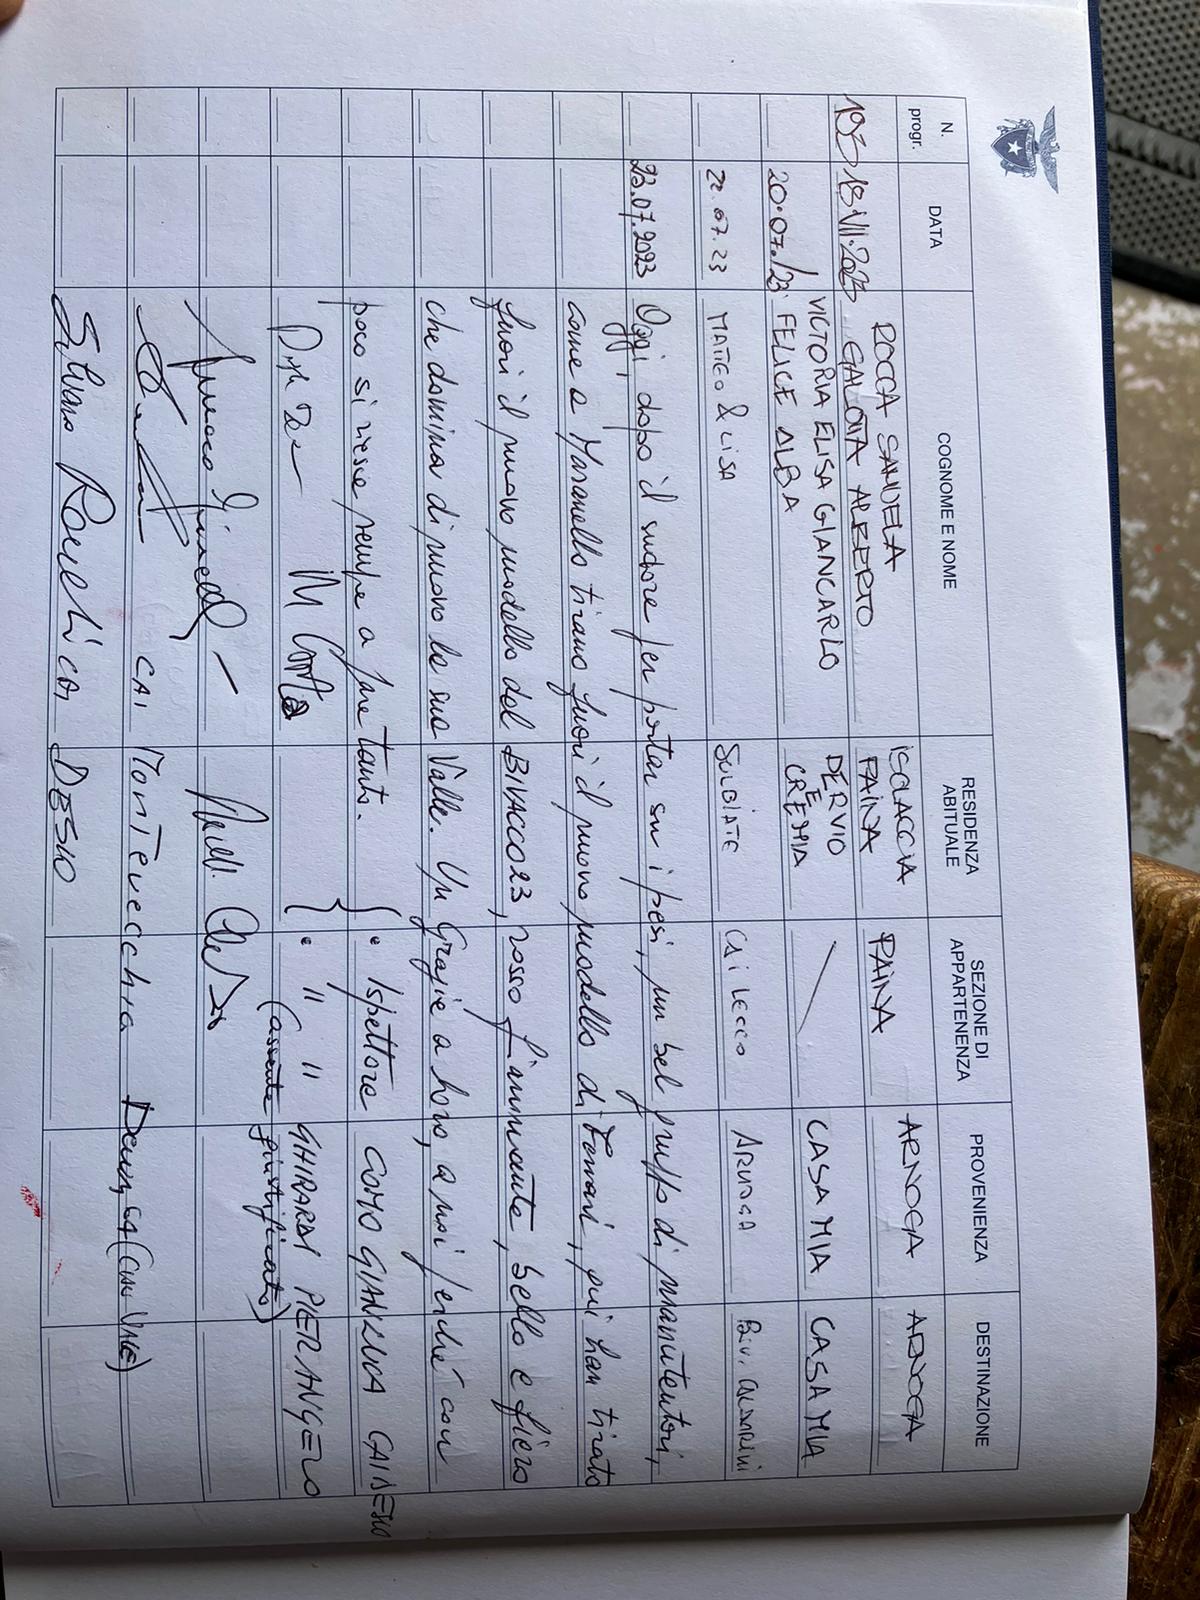 N. progr. DATA COGNOME E NOME RESIDENZA ABITUALE SEZIONE DI APPARTENENZA PROVENIENZA DESTINAZIONE
ROCCA SANDELA ISOLACCIA
18.VII.2023 GALOTA ALBERTO PAINA PAINA ARNOGA ARNOGA
VICTORIA ELISA GIANCARLO DERVIO
20.07./23 FELICE ALBA E CREMIA CASA MIA CASA MIA
22.07.23 MATTEO & LISA SULBIATE CAI LECCO ARNOGA BIV. CALDARINI
23.07.2023 Oggi, dopo il sudore per portar su i pesi, un bel gruppo di manutentori,
come a Maranello tirano fuori il nuovo modello di Ferrari, qui han tirato
fuori il nuovo modello del BIVACCO23, rosso fiammante, bello e fiero
che domina di nuovo la sua Valle. Un Grazie a loro, a noi perché con
poco si riesce sempre a fare tanto. { • Ispettore COMO GIANLUCA
• " " GHIRARDI PIERANGELO
(assente giustificato)
CAI Montevecchia
Silvano CAI DESIO